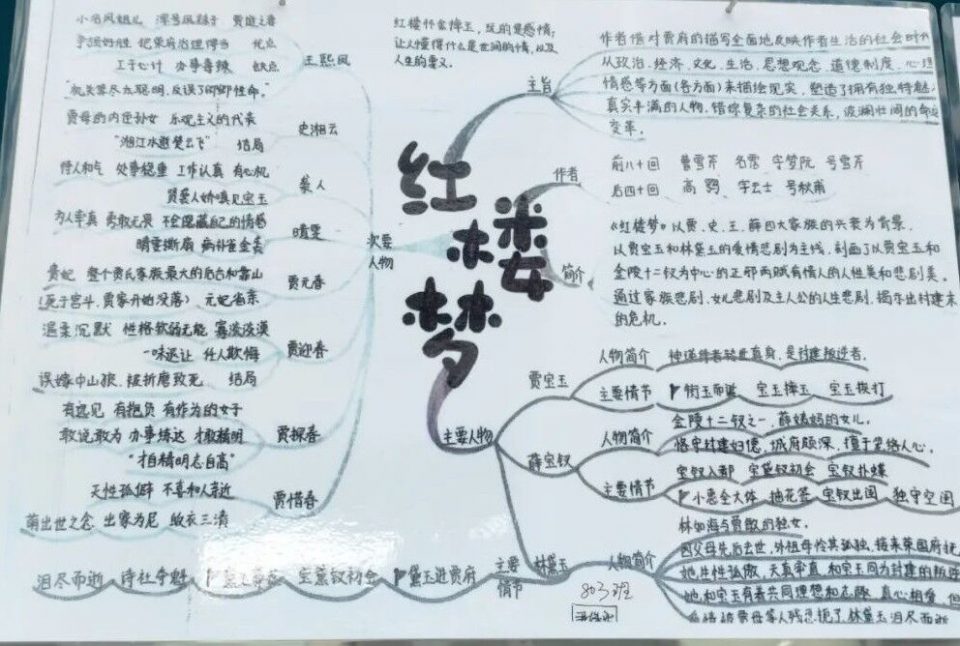 红楼梦
红楼怀金悼玉，玩的是感情；
让人懂得什么是世间的情，以及
人生的意义。
主旨
作者借对贾府的描写全面地反映作者生活的社会时代
从政治、经济、文化、生活、思想观念、道德制度、心理
情感等方面(各方面)来描绘现实，塑造了拥有独特魅
真实丰满的人物、错综复杂的社会关系，波澜壮阔的命运
变革。
作者
前八十回 曹雪芹 名霑 字梦阮 号雪芹
后四十回 高鹗 字云士 号秋甫
简介
《红楼梦》以贾、史、王、薛四大家族的兴衰为背景，
以贾宝玉和林黛玉的爱情悲剧为主线，刻画了以贾宝玉和
金陵十二钗为中心的正邪两赋有情人的人性美和悲剧美。
通过家族悲剧、女儿悲剧及主人公的人生悲剧，揭示出封建末
的危机。
主要人物
贾宝玉
人物简介 神瑛侍者转世真身，是封建叛逆者。
主要情节 衔玉而诞 宝玉摔玉 宝玉挨打
薛宝钗
人物简介
金陵十二钗之一，薛姨妈的女儿。
恪守封建妇德，城府颇深，擅于笼络人心。
主要情节
宝钗入都 宝黛钗初会 宝钗扑蝶
小惠全大体 抽花签 宝钗出闺 独守空闺
林黛玉
人物简介
林如海与贾敏的独女。
因父母先后去世，外祖母怜其孤独，接来荣国府抚
她生性孤傲，天真率真，和宝玉同为封建的叛逆
她和宝玉有着共同理想和志趣，真心相爱，但
母等人残忍扼了，林黛玉泪尽而逝
主要
情节
黛玉进贾府
宝黛钗初会
黛玉葬花
诗社夺魁
泪尽而逝
803班
次要
人物
王熙凤
小名凤姐儿 浑号凤辣子 贾琏之妻
争强好胜 把荣府治理得当 优点
工于心计 办事毒辣 缺点
“机关算尽太聪明，反误了卿卿性命。”
史湘云
贾母的内侄孙女 乐观主义的代表
“湘江水逝楚云飞” 结局
袭人
待人和气 处事稳重 工作认真 有心机
贤袭人娇嗔见宝玉
晴雯
为人率真 勇敢无畏 不会隐藏自己的情感
晴雯撕扇 病补雀金裘
贾元春
贵妃 整个贾氏家族最大的后台和靠山
(死于宫斗，贾家开始没落) 元妃省亲
贾迎春
温柔沉默 性格软弱无能 寡淡淡漠
一味退让 任人欺侮
误嫁中山狼，被折磨致死 结局
贾探春
有远见 有抱负 有作为的女子
敢说敢为 办事练达 才敏精明
“才自精明志自高”
贾惜春
天性孤僻 不喜和人亲近
萌出世之念 出家为尼 缁衣三渍